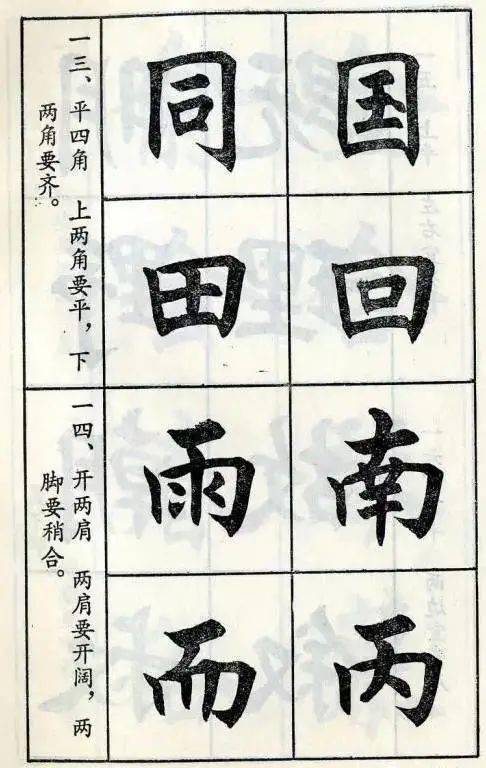 国
同
回
田
南
雨
丙
而
一三、平四角　上两角要平，下
两角要齐。
一四、开两肩　两肩要开阔，两
脚要稍合。